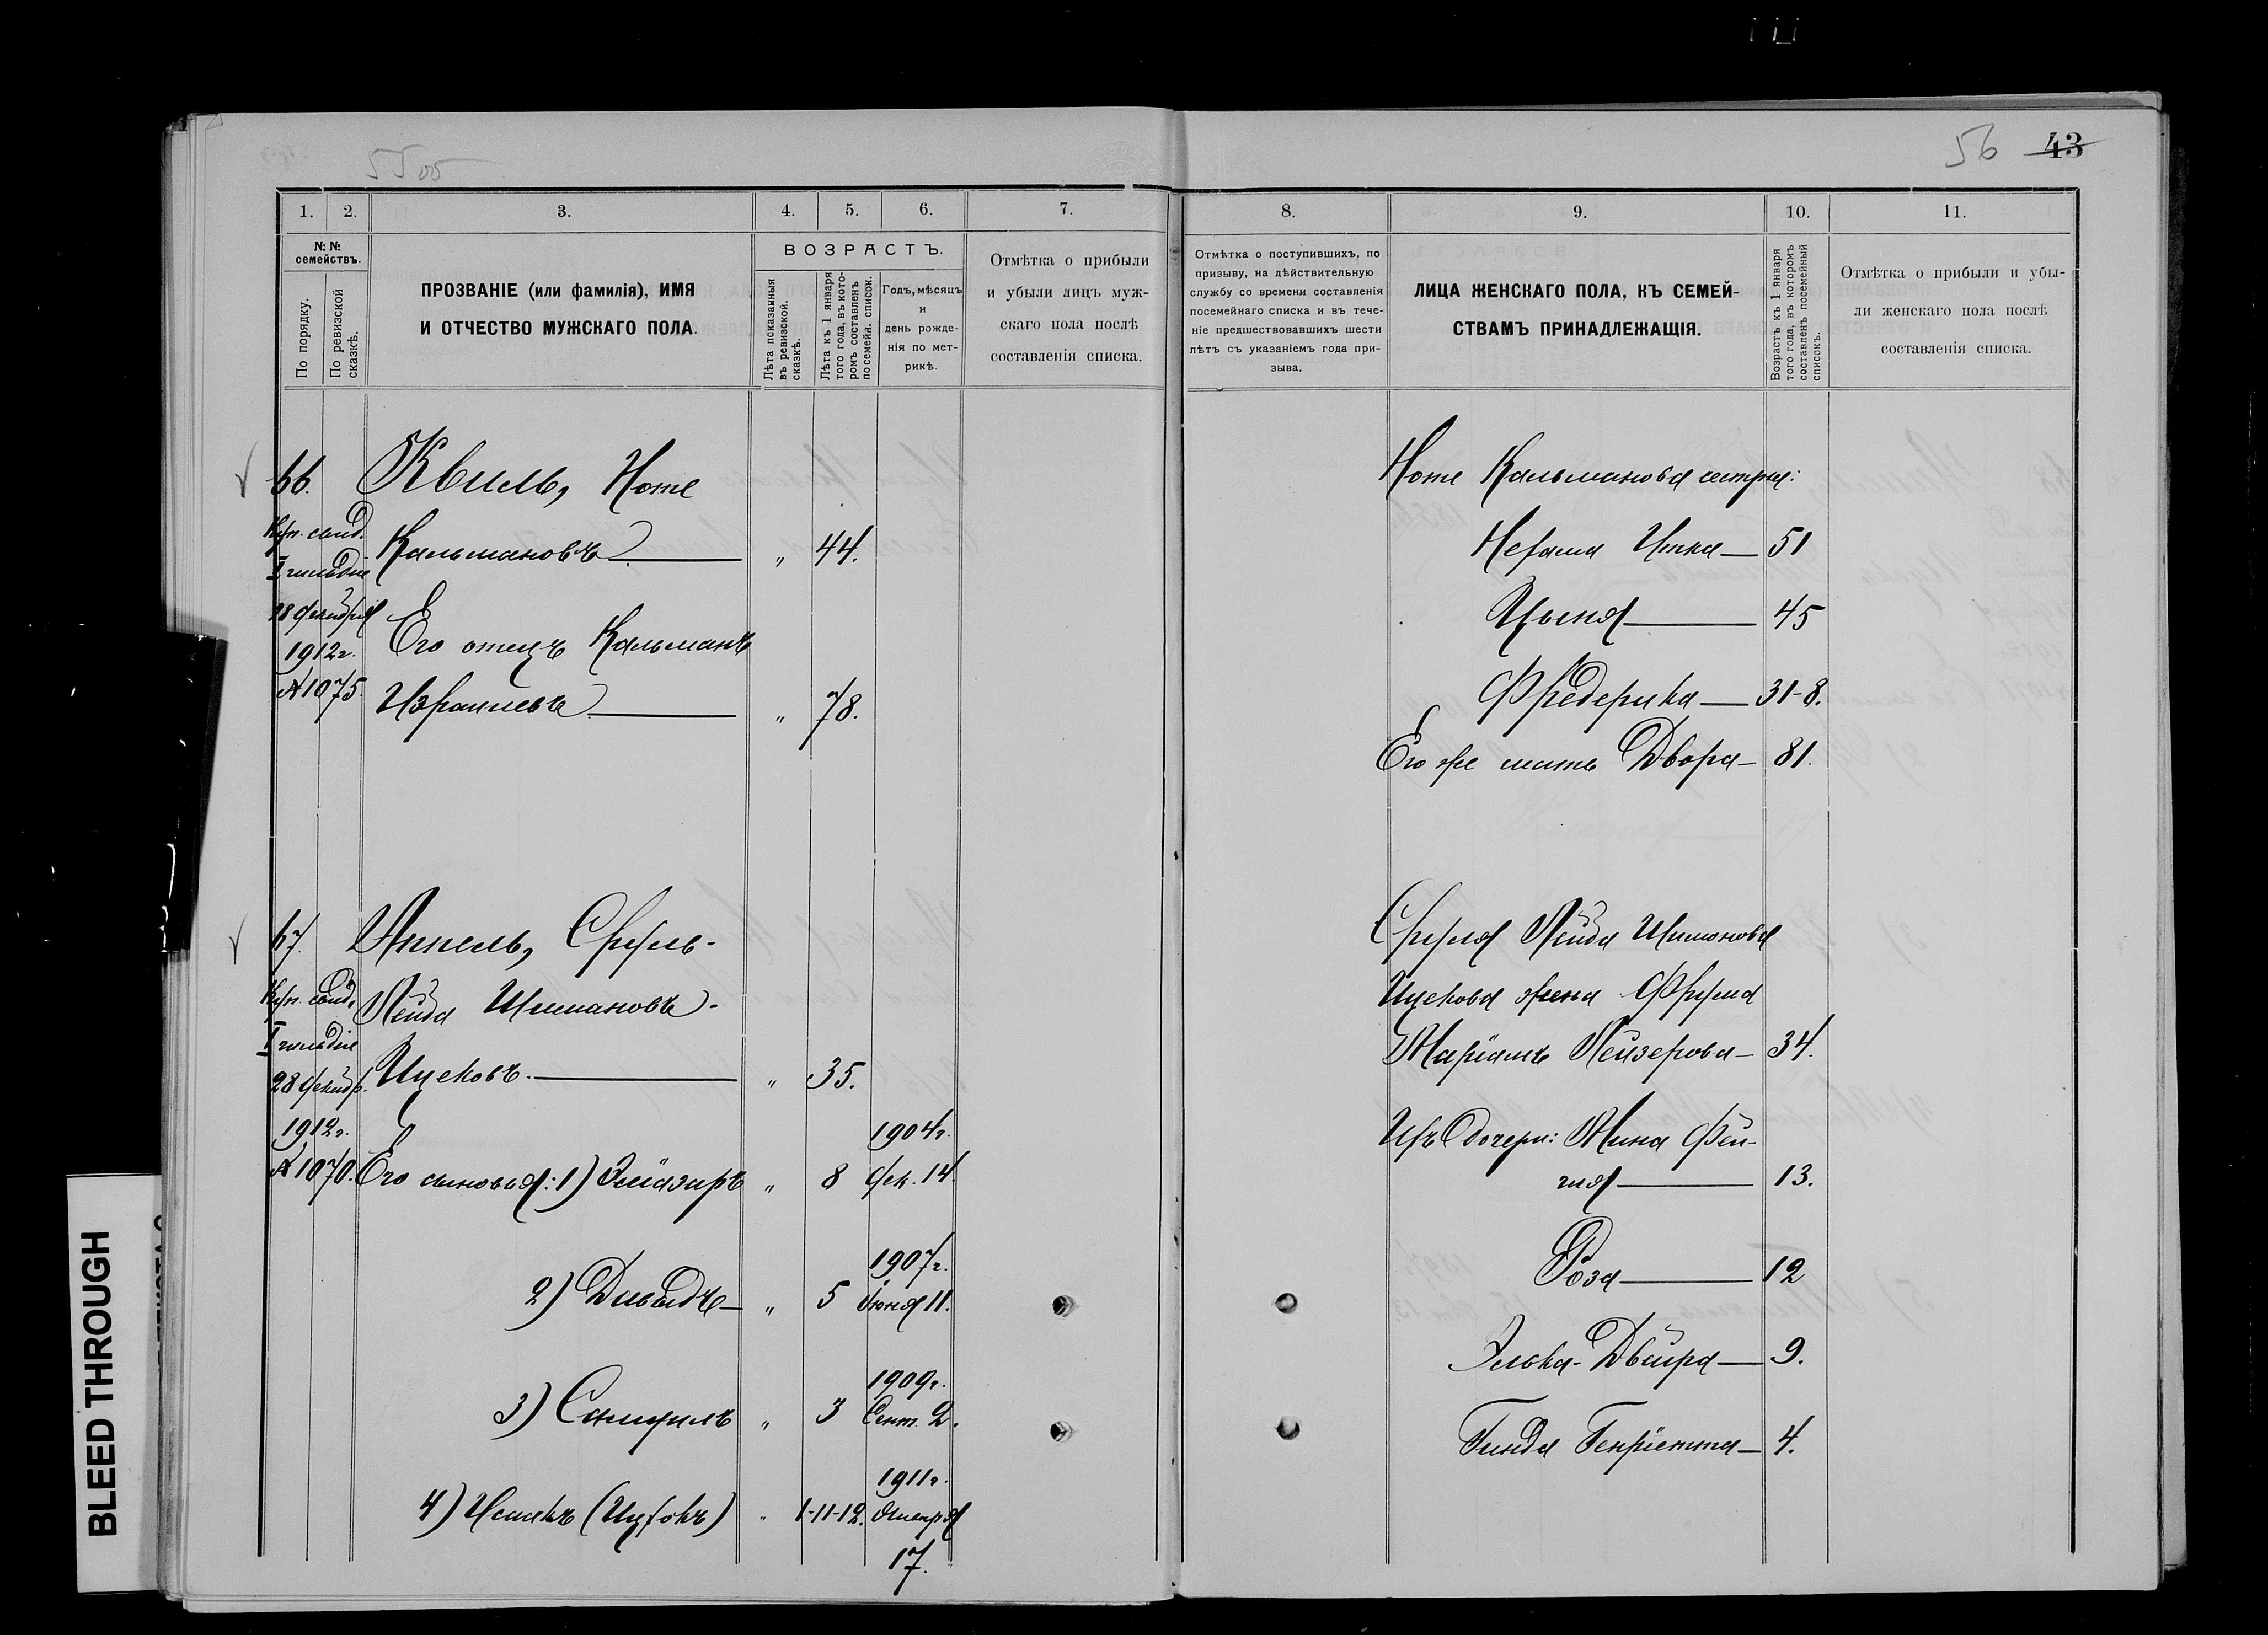 55 об
56 43
1. 2. 3. 4. 5. 6. 7.
№№ семействъ.
По порядку.
По ревизской сказкѣ.
ПРОЗВАНІЕ (или фамилія), ИМЯ
И ОТЧЕСТВО МУЖСКАГО ПОЛА.
ВОЗРАСТЪ.
Лѣта показанныя
въ ревизской
сказкѣ.
Лѣта къ 1 января
того года, въ кото-
ромъ составленъ
посемейн. список.
Годъ, мѣсяцъ
и
день рожде-
нія по мет-
рикѣ.
Отмѣтка о прибыли
и убыли лицъ муж-
скаго пола послѣ
составленія списка.
66. Квиль, Ноте
Куп. свид.
I гильдіи
28 декабря
1912 г.
№ 1075.
Кальмановъ — „ 44.
Его отецъ Кальманъ
Израилевъ — „ 78.
67. Аппель, Сруль-
Куп. свид.
I гильдіи
28 декабр.
1912 г.
№ 1070.
Лейба Шимановъ-
Ицековъ. — „ 35.
1904 г.
Его сыновья: 1) Эліазаръ „ 8 Дек. 14.
1907 г.
2) Давидъ — „ 5 Іюня 11.
1909 г.
3) Самуилъ „ 3 Сент. 2.
1911 г.
4) Исаакъ (Ицхокъ) „ 1-11-12. Января
17.
8. 9. 10. 11.
Отмѣтка о поступившихъ, по
призыву, на дѣйствительную
службу со времени составленія
посемейнаго списка и въ тече-
ніе предшествовавшихъ шести
лѣтъ съ указаніемъ года при-
зыва.
ЛИЦА ЖЕНСКАГО ПОЛА, КЪ СЕМЕЙ-
СТВАМЪ ПРИНАДЛЕЖАЩІЯ.
Возрастъ къ 1 января
того года, въ которомъ
составленъ посемейный
списокъ.
Отмѣтка о прибыли и убы-
ли женскаго пола послѣ
составленія списка.
Ноте Кальманова сестры:
Нехама Итка — 51
Цыпя — 45
Фредерика — 31-8.
Его же мать Двора — 81.
Сруля Лейба Шимонова
Ицекова жена Фрума
Маріамъ Лейзерова — 34.
Ихъ дочери: Мина Фей-
гня — 13.
Роза — 12
Элька-Двейра — 9.
Гинда Генріетта — 4.
BLEED THROUGH